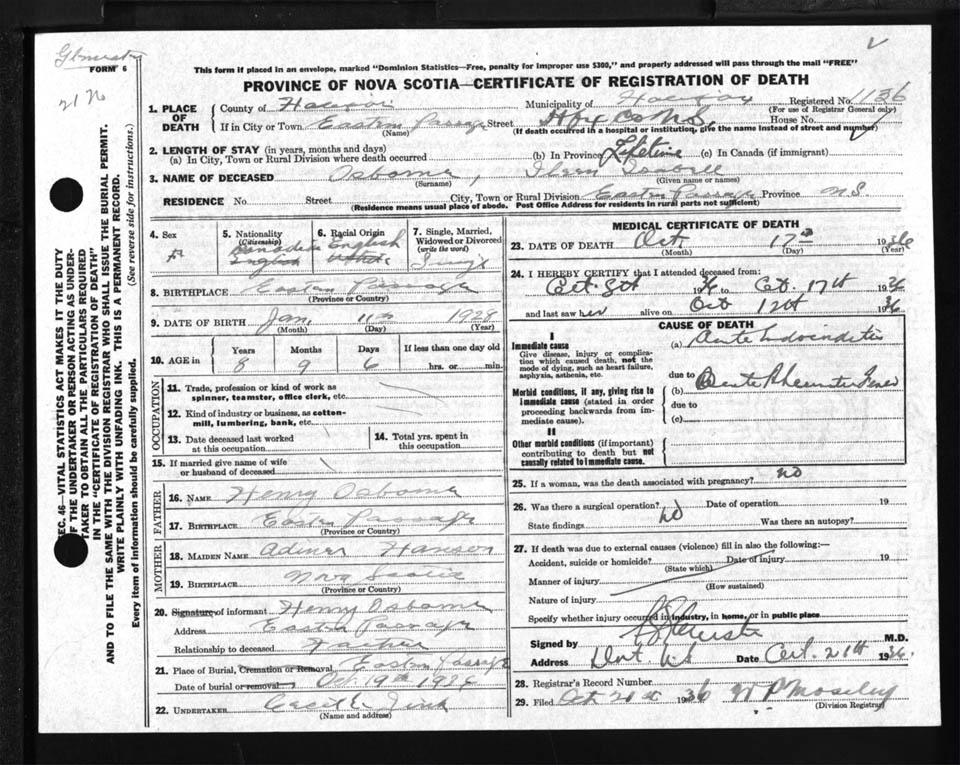 FORM 6
This form if placed in an envelope, marked "Dominion Statistics—Free, penalty for improper use $300," and properly addressed will pass through the mail "FREE"
PROVINCE OF NOVA SCOTIA—CERTIFICATE OF REGISTRATION OF DEATH
1. PLACE OF DEATH
County of Halifax
Municipality of Halifax
Registered No. 1136
(For use of Registrar General only)
If in City or Town Eastern Passage Street Hfx Co N.S. House No.
(Name) (If death occurred in a hospital or institution, give the name instead of street and number)
2. LENGTH OF STAY (in years, months and days)
(a) In City, Town or Rural Division where death occurred (b) In Province Lifetime (c) In Canada (if immigrant)
3. NAME OF DECEASED Osborne,
(Surname) (Given name or names)
RESIDENCE No. Street City, Town or Rural Division Eastern Passage Province N.S.
(Residence means usual place of abode. Post Office Address for residents in rural parts not sufficient)
SEC. 46—VITAL STATISTICS ACT MAKES IT THE DUTY
OF THE UNDERTAKER OR PERSON ACTING AS UNDER-
TAKER TO OBTAIN ALL THE PARTICULARS REQUIRED
IN THE "CERTIFICATE OF REGISTRATION OF DEATH"
AND TO FILE THE SAME WITH THE DIVISION REGISTRAR WHO SHALL ISSUE THE BURIAL PERMIT.
WRITE PLAINLY WITH UNFADING INK. THIS IS A PERMANENT RECORD.
Every item of information should be carefully supplied. (See reverse side for instructions.)
4. Sex F
5. Nationality (Citizenship) Canadian English
6. Racial Origin English White
7. Single, Married, Widowed or Divorced (write the word) Single
8. BIRTHPLACE Eastern Passage
(Province or Country)
9. DATE OF BIRTH Jan. 11th 1928
(Month) (Day) (Year)
10. AGE in Years Months Days If less than one day old
8 9 6 hrs. or min.
OCCUPATION
11. Trade, profession or kind of work as spinner, teamster, office clerk, etc.
12. Kind of industry or business, as cotton-mill, lumbering, bank, etc.
13. Date deceased last worked at this occupation
14. Total yrs. spent in this occupation
15. If married give name of wife or husband of deceased
FATHER
16. NAME Henry Osborne
17. BIRTHPLACE Eastern Passage
(Province or Country)
MOTHER
18. MAIDEN NAME Hanson
19. BIRTHPLACE Nova Scotia
(Province or Country)
20. Signature of informant Henry Osborne
Address Eastern Passage
Relationship to deceased Father
21. Place of Burial, Cremation or Removal Eastern Passage
Date of burial or removal Oct. 19th 1936
22. UNDERTAKER Cecil E. Zink
(Name and address)
MEDICAL CERTIFICATE OF DEATH
23. DATE OF DEATH Oct 17th 1936
(Month) (Day) (Year)
24. I HEREBY CERTIFY that I attended deceased from:
Oct. 8th 1936 to Oct. 17th 1936
and last saw her alive on Oct 17th 1936
CAUSE OF DEATH
I
Immediate cause
Give disease, injury or complication which caused death, not the mode of dying, such as heart failure, asphyxia, asthenia, etc.
(a) Acute Endocarditis
due to
Morbid conditions, if any, giving rise to immediate cause (stated in order proceeding backwards from immediate cause).
(b) Acute Rheumatic Fever
due to
(c)
II
Other morbid conditions (if important) contributing to death but not causally related to immediate cause.
25. If a woman, was the death associated with pregnancy? no
26. Was there a surgical operation? No Date of operation 19
State findings Was there an autopsy?
27. If death was due to external causes (violence) fill in also the following:—
Accident, suicide or homicide? Date of injury 19
(State which)
Manner of injury
(How sustained)
Nature of injury
Specify whether injury occurred in industry, in home, or in public place
Signed by M.D.
Address Dart. N.S. Date Oct. 21st 1936.
28. Registrar's Record Number
29. Filed Oct 21st 1936 W P Moseley
(Division Registrar)